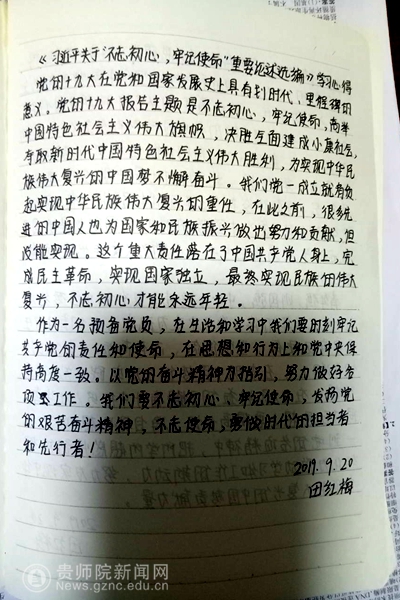 《习近平关于"不忘初心,牢记使命"重要论述选编》学习心得
党的十九大在党和国家发展史上具有划时代、里程碑的
意义。党的十九大报告主题是不忘初心,牢记使命,高举
中国特色社会主义伟大旗帜,决胜全面建成小康社会,
夺取新时代中国特色社会主义伟大胜利,为实现中华民
族伟大复兴的中国梦不懈奋斗。我们党一成立就肩负
起实现中华民族伟大复兴的重任,在此之前,很多先
进的中国人也为国家和民族振兴做出努力和贡献,但
没能实现。这个重大责任落在了中国共产党人身上,完
成民主革命,实现国家独立,最终实现民族的伟大
复兴,不忘初心才能永远年轻。
作为一名预备党员,在生活和学习中我们要时刻牢记
共产党的责任和使命,在思想和行为上和党中央保
持高度一致。以党的奋斗精神为指引,努力做好各
项工作。我们要不忘初心,牢记使命,发扬党
的艰苦奋斗精神,不忘使命,要做时代的担当者
和先行者!
2019.9.20
田红梅
贵师院新闻网
News.gznc.edu.cn